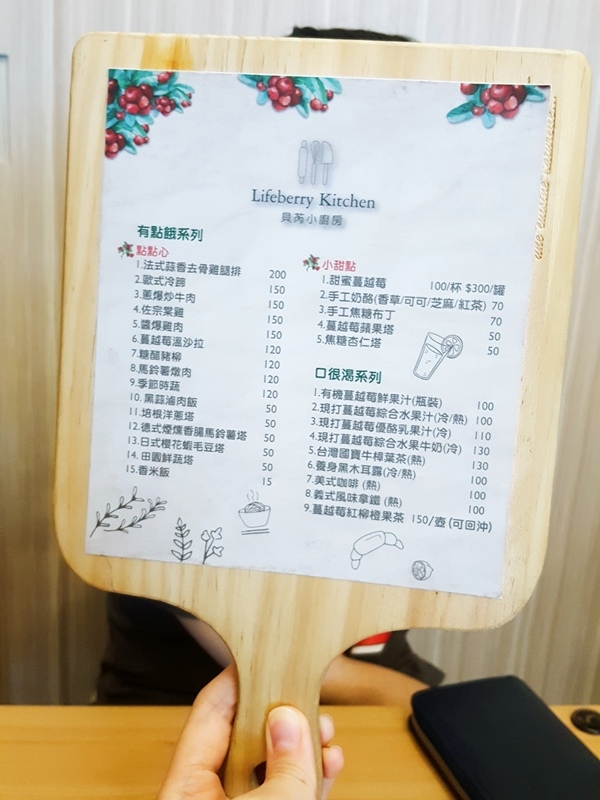 Lifeberry Kitchen
貝芮小廚房
有點餓系列
點點心
1.法式蒜香去骨雞腿排 200
2.歐式冷蹄 150
3.蔥爆炒牛肉 150
4.佐宗棠雞 150
5.醬爆雞肉 150
6.蔓越莓溫沙拉 150
7.糖醋豬柳 120
8.馬鈴薯燉肉 120
9.季節時蔬 120
10.黑蒜滷肉飯 120
11.培根洋蔥塔 50
12.德式煙燻香腸馬鈴薯塔 50
13.日式櫻花蝦毛豆塔 50
14.田園鮮蔬塔 50
15.香米飯 15
小甜點
1.甜蜜蔓越莓 100/杯 $300/罐
2.手工奶酪(香草/可可/芝麻/紅茶) 70
3.手工焦糖布丁 70
4.蔓越莓蘋果塔 50
5.焦糖杏仁塔 50
口很渴系列
1.有機蔓越莓鮮果汁(瓶裝) 100
2.現打蔓越莓綜合水果汁(冷/熱) 100
3.現打蔓越莓優酪乳果汁(冷) 110
4.現打蔓越莓綜合水果牛奶(冷) 130
5.台灣國寶牛樟葉茶(熱) 130
6.養身黑木耳露(冷/熱) 100
7.美式咖啡 (熱) 100
8.義式風味拿鐵 (熱) 100
9.蔓越莓紅柳橙果茶 150/壺 (可回沖)